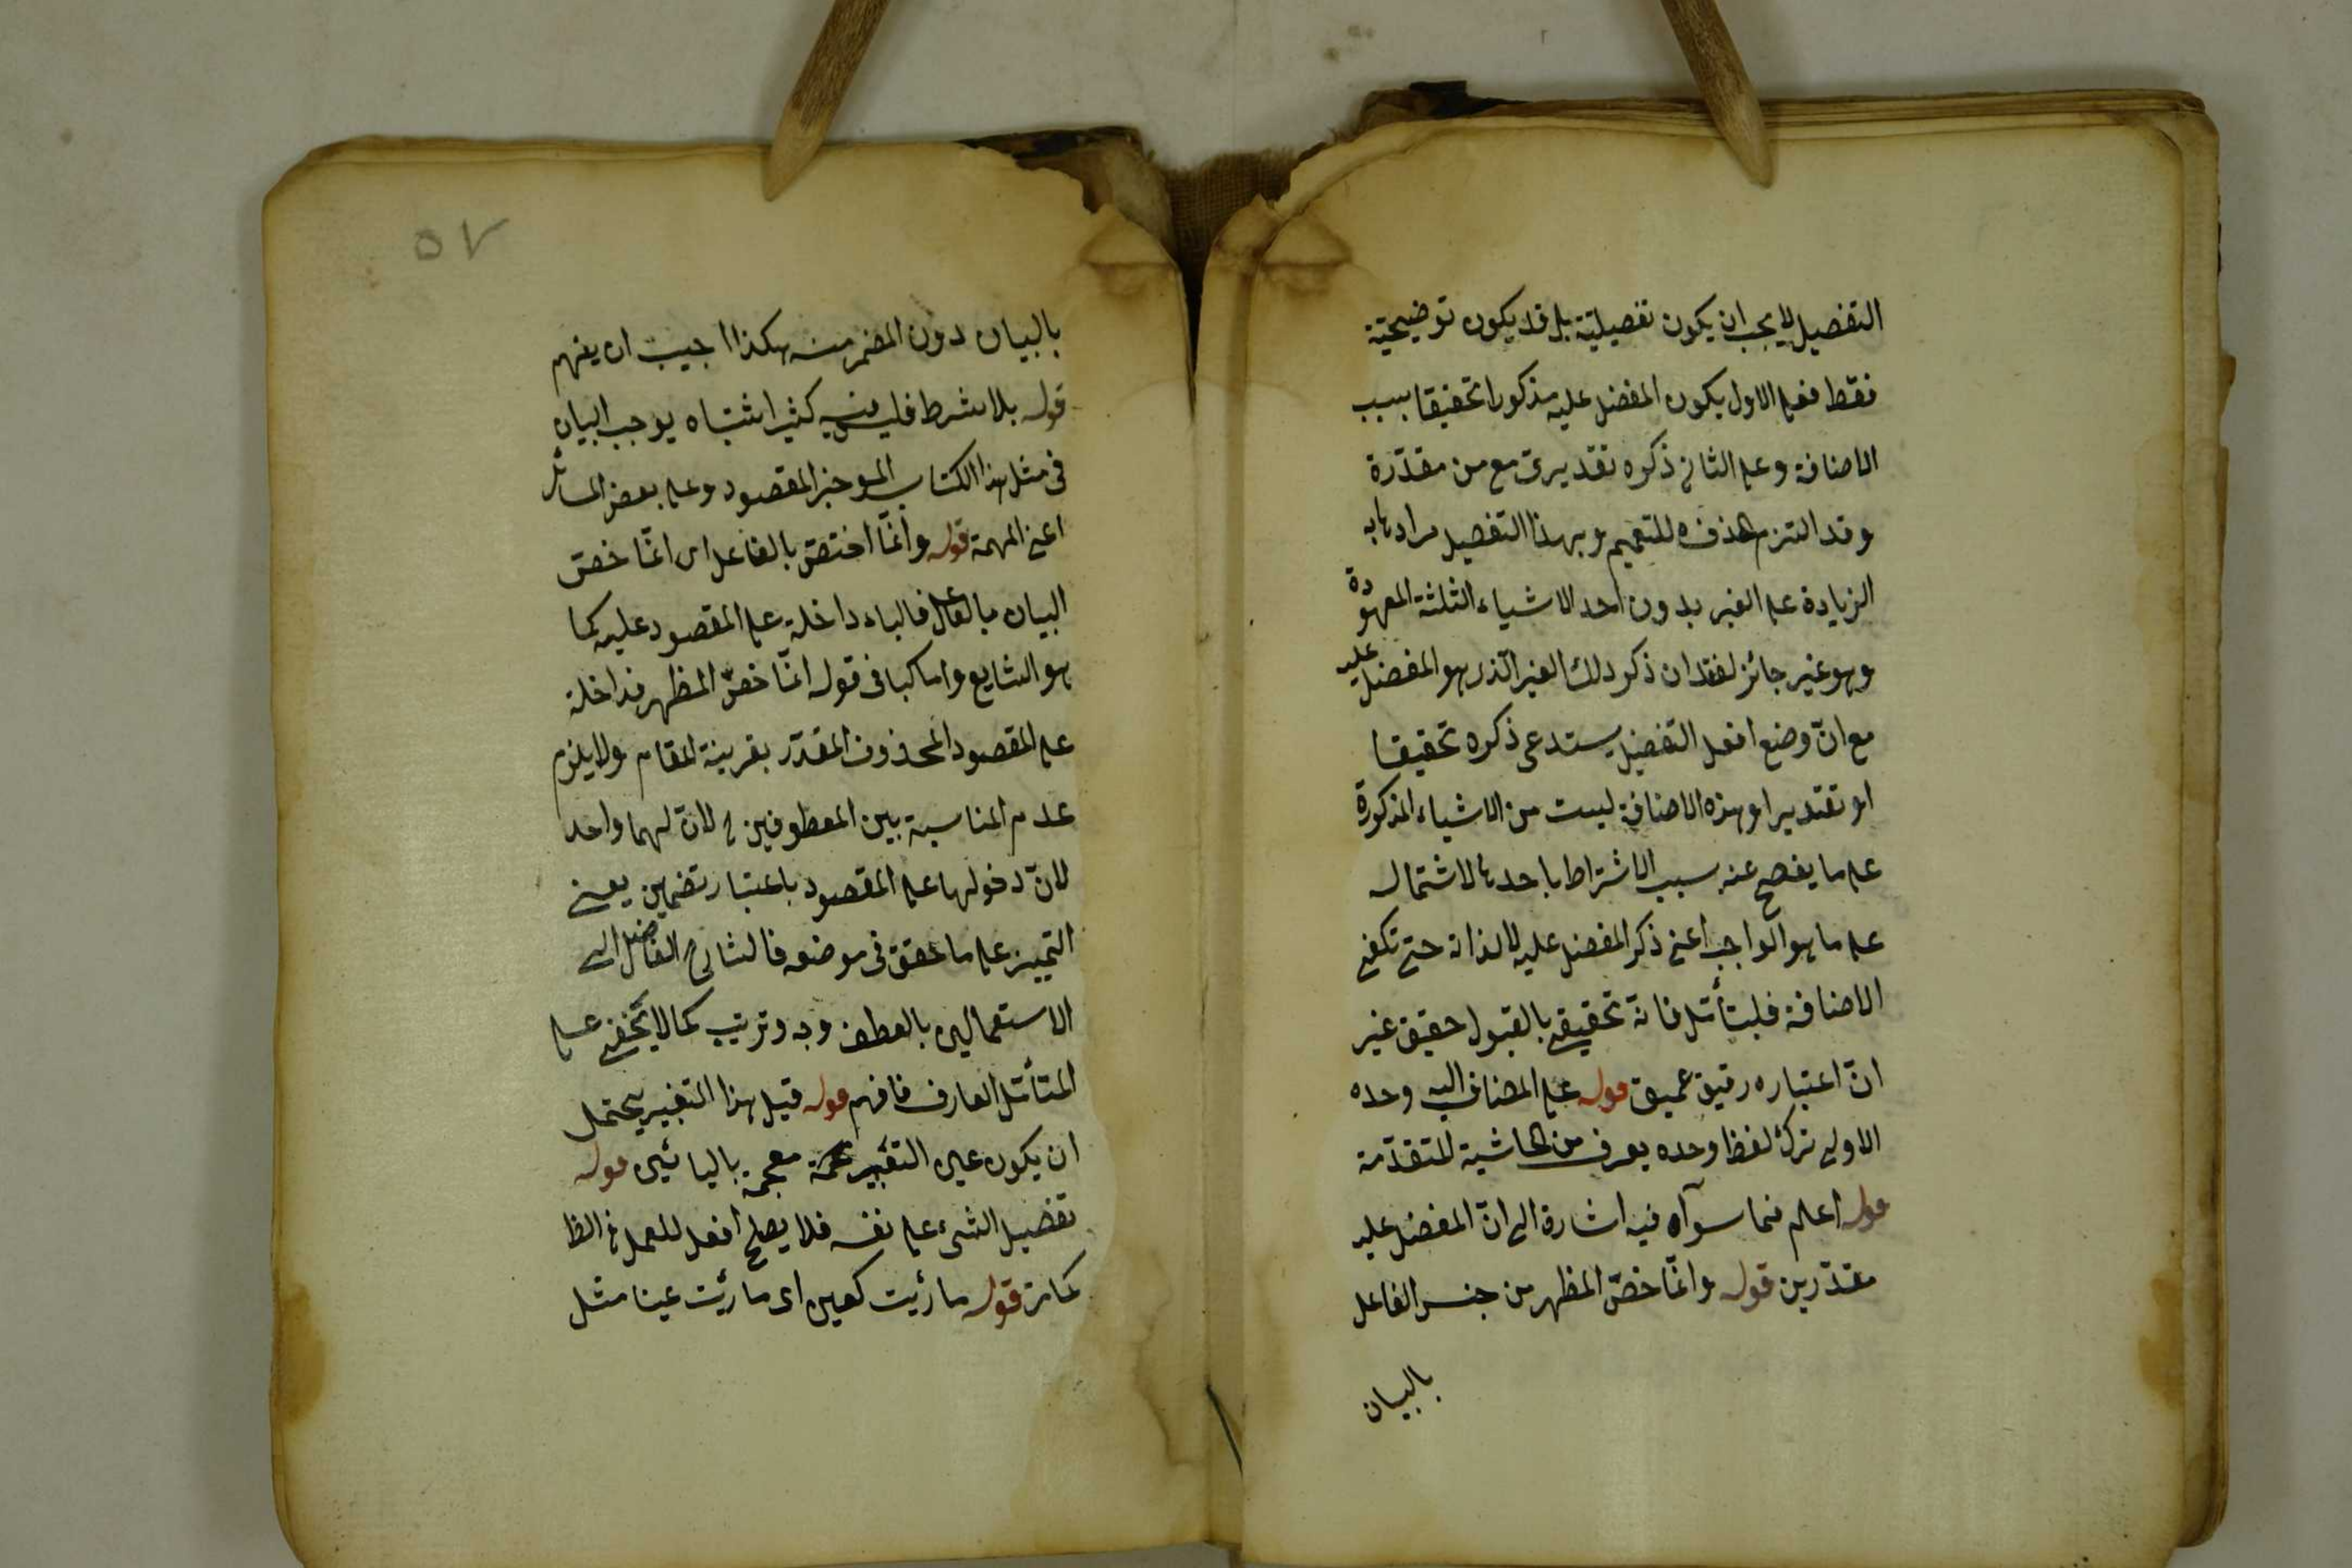 التفضيل لا يجب ان يكون تفصيليّة بل قد يكون توضيحيّة
فقط فعلى الاول يكون المفضل عليه مذكورا تحقيقا بسبب
الاضافة وعلى الثانى ذكره تقديرى مع من مقدّرة
وقد التزم حذفه للتعميم وبهذا التفصيل مرادها به
الزيادة على الغير بدون احد الاشياء الثلثة المعهودة
وهو غير جائز لفقدان ذكر ذلك الغير الذى هو المفضل عليه
مع انّ وضع افعل التفضيل يستدعى ذكره تحقيقا
او تقديرا وهذه الاضافة ليست من الاشياء المذكورة
على ما يفصح عنه سبب الاشتراط باحدها لاشتماله
على ما هو الواجب اعنى ذكر المفضل عليه لا لذاته حتى تكفى
الاضافة فليتأمّل فانه تحقيق بالقبول حقيق غير
انّ اعتباره دقيق عميق قوله على المضاف اليه وحده
الاولى ترك لفظ وحده يعرف من الحاشية المتقدّمة
قوله اعلم مما سواه فيه اشارة الى انّ المفضل عليه
مقدّر بن قوله وانّما خصّ المظهر من جنس الفاعل
بالبيان
٥٧
بالبيان دون المضمر منه هكذا اجيب ان يفهم
قوله بلا شرط فليس فيه كثير اشتباه يوجب البيان
فى مثل هذا الكتاب الموجز المقصود وعلى بعض المسائل
اعنى المهمة قوله وانّما اختصّ بالفاعل اى انّما خصّ
البيان بالفاعل فالباء داخلة على المقصود عليه كما
هو الشايع واما كبا فى قوله انّما خصّ المظهر فداخلة
على المقصود المحذوف المقدّر بقرينة المقام ولا يلزم
عدم المناسبة بين المعطوفين ح لانّ لهما واحد
لانّ دخولها على المقصود باعتبار تضمين يعنى
التمييز على ما حقق فى موضعه فالشارح الفاضل الى
الاستعمالين بالعطف وجه وترتيب كما لا يخفى على
المتأمّل العارف فافهم قوله قيل هذا التغيير يحتمل
ان يكون عين التغيير معجمة باليائين قوله
تفضيل الشئ على نفسه فلا يصلح افعل للعمل فى الظا
كما مرّ قوله ما رأيت كعين اى ما رأيت عينا مثل